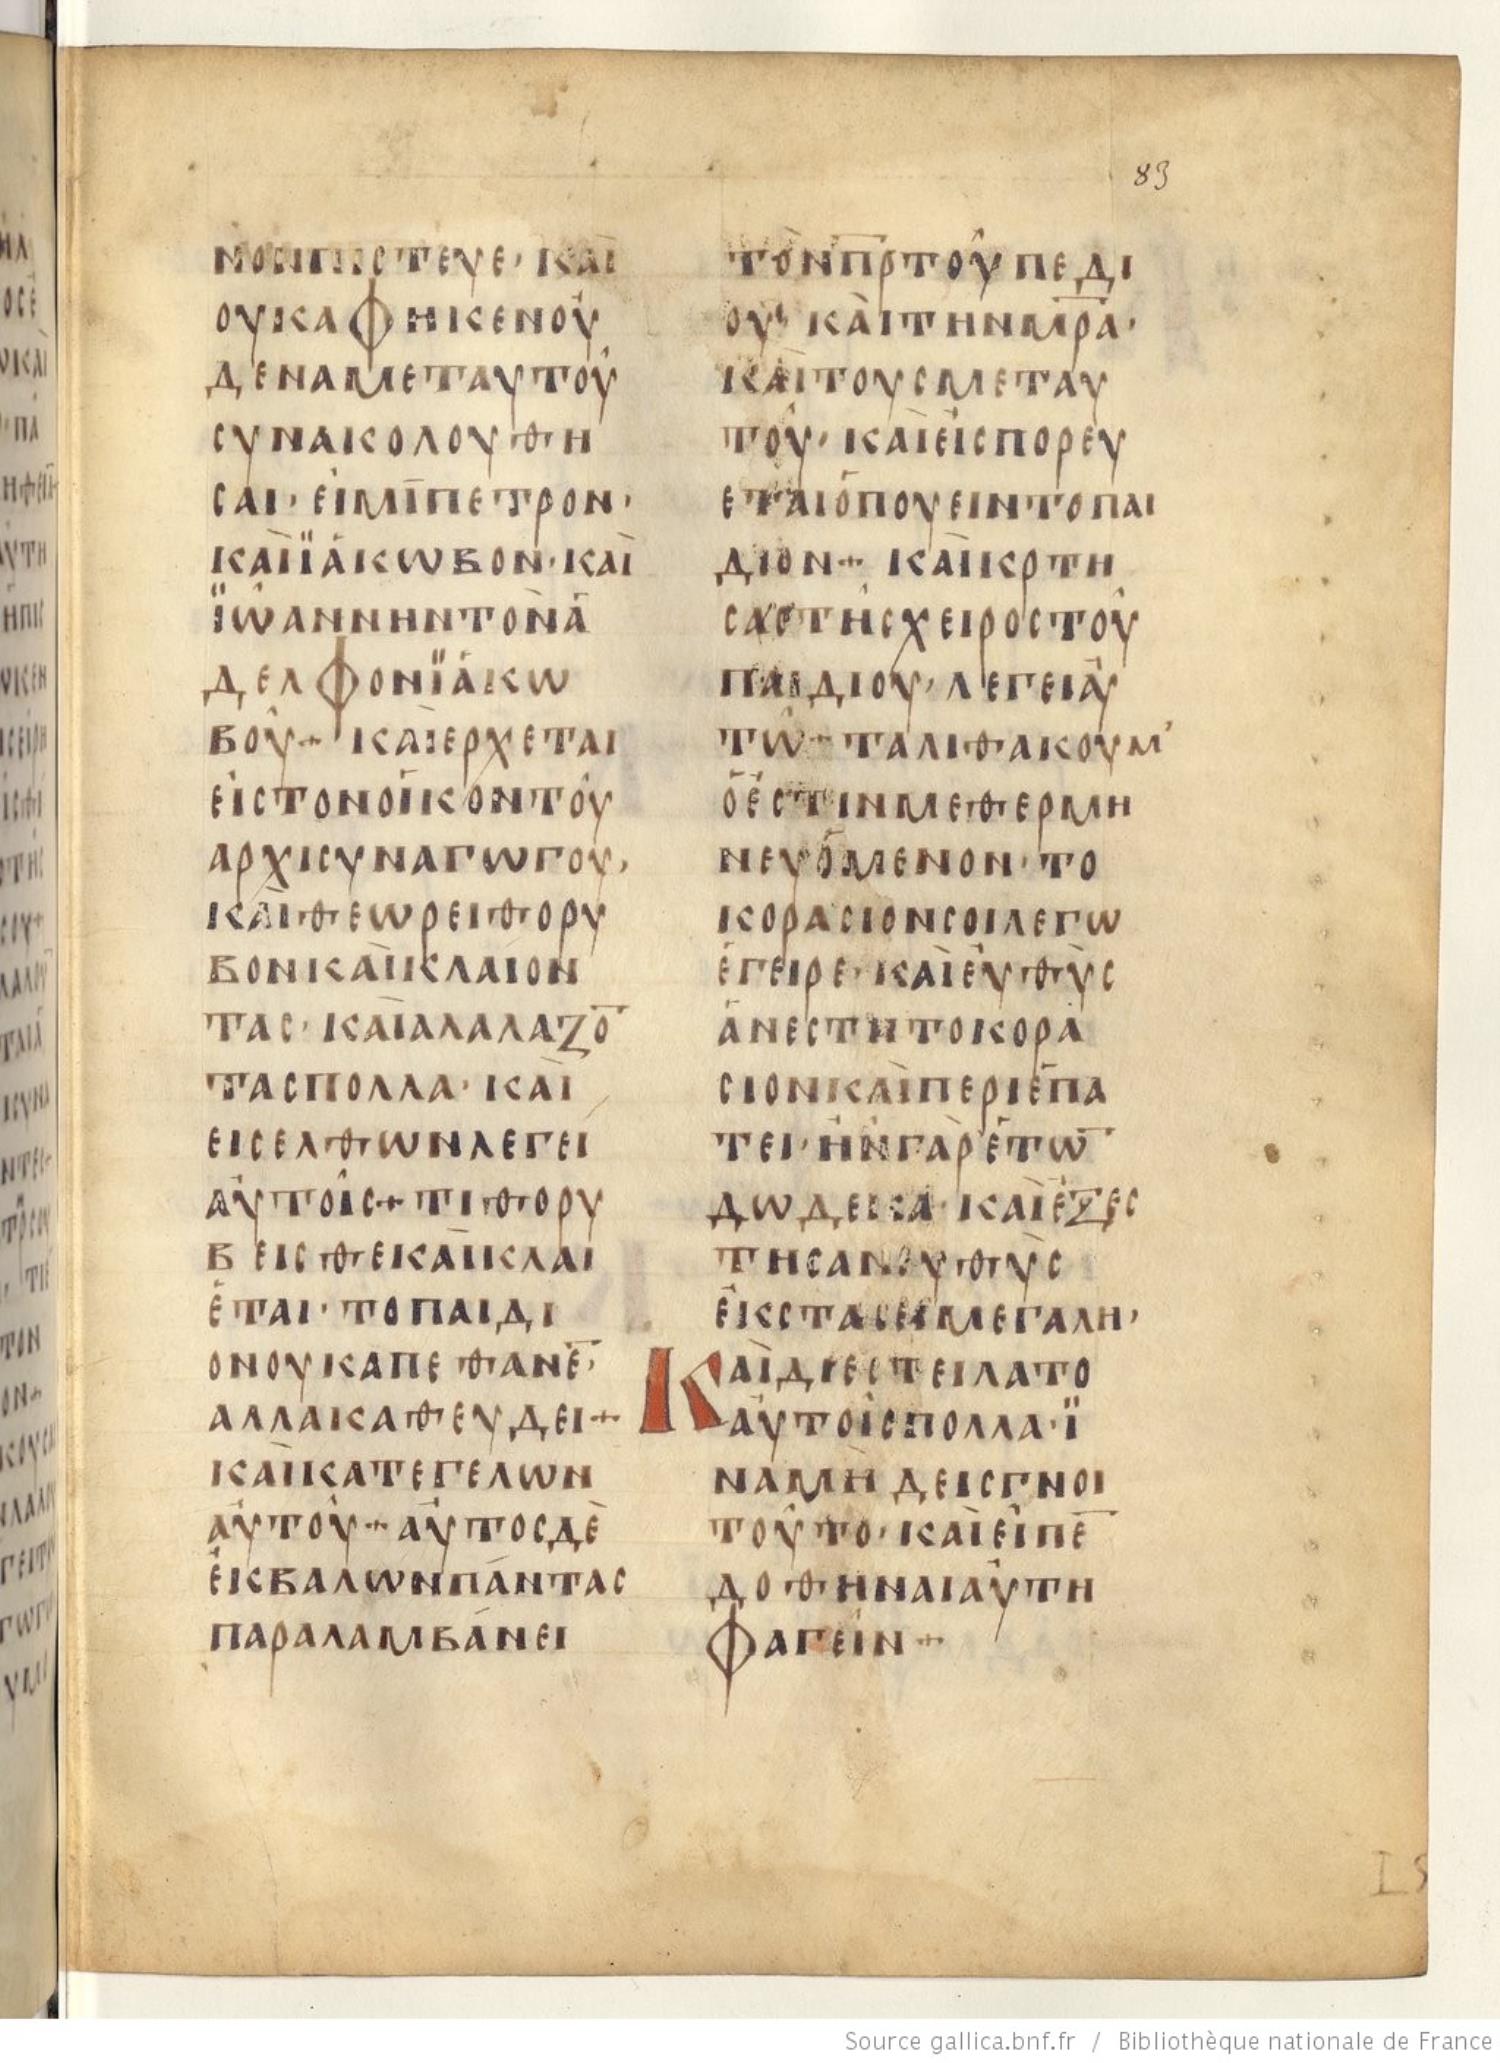 83
ΝΟΝΠΙΣΤΕΥΕ· ΚΑῚ
ΟΥΚΑΦΗΚΕΝΟΥ
ΔΕΝΑΜΕΤΑΥΤΟΥ
ϹΥΝΑΚΟΛΟΥΘΗ
ϹΑΙ· ΕΙΜΙΠΕΤΡΟΝ·
ΚΑῚΪΑΚΩΒΟΝ· ΚΑῚ
ΪΩΑΝΝΗΝΤΟΝΑ
ΔΕΛΦΟΝΪΑΚΩ
ΒΟΥ+ ΚΑῚΕΡΧΕΤΑΙ
ΕΙϹΤΟΝΟΙΚΟΝΤΟΥ
ΑΡΧΙϹΥΝΑΓΩΓΟΥ·
ΚΑῚΘΕΩΡΕΙΘΟΡΥ
ΒΟΝΚΑῚΚΛΑΙΟΝ
ΤΑϹ· ΚΑῚΑΛΑΛΑΖΟ̅
ΤΑϹΠΟΛΛΑ· ΚΑῚ
ΕΙϹΕΛΘΩΝΛΕΓΕΙ
ΑΥΤΟΙϹ+ ΤΙΘΟΡΥ
ΒΕΙϹΘΕΚΑῚΚΛΑΙ
ΕΤΑΙ· ΤΟΠΑΙΔΙ
ΟΝΟΥΚΑΠΕΘΑΝΕ̅·
ΑΛΛΑΚΑΘΕΥΔΕΙ+
ΚΑῚΚΑΤΕΓΕΛΩΝ
ΑΥΤΟΥ+ ΑΥΤΟϹΔΕ
ΕΚΒΑΛΩΝΠΑΝΤΑϹ
ΠΑΡΑΛΑΜΒΑΝΕΙ
ΤΟΝΠ̅Ρ̅ΤΟΥΠΕΔΙ
ΟΥ· ΚΑῚΤΗΝΜ̅Ρ̅Α·
ΚΑῚΤΟΥϹΜΕΤΑΥ
ΤΟΥ· ΚΑῚΕΙϹΠΟΡΕΥ
ΕΤΑΙΟΠΟΥΕΙΝΤΟΠΑΙ
ΔΙΟΝ+ ΚΑῚΚΡΤΗ
ϹΑϹΤΗϹΧΕΙΡΟϹΤΟΥ
ΠΑΙΔΙΟΥ· ΛΕΓΕΙΑΥ
ΤΩ+ ΤΑΛΙΘΑΚΟΥΜ'
ΟΕϹΤΙΝΜΕΘΕΡΜΗ
ΝΕΥΟΜΕΝΟΝ· ΤΟ
ΚΟΡΑϹΙΟΝϹΟΙΛΕΓΩ
ΕΓΕΙΡΕ· ΚΑῚΕΥΘΥϹ
ΑΝΕϹΤΗΤΟΚΟΡΑ
ϹΙΟΝΚΑῚΠΕΡΙΕΠΑ
ΤΕΙ· ΗΝΓΑΡΕΤΩ̅
ΔΩΔΕΚΑ· ΚΑῚΕΞΕϹ
ΤΗϹΑΝΕΥΘΥϹ
ΕΚϹΤΑϹΕΙΜΕΓΑΛΗ·
ΚΑῚΔΙΕϹΤΕΙΛΑΤΟ
ΑΥΤΟΙϹΠΟΛΛΑ· Ϊ
ΝΑΜΗΔΕΙϹΓΝΟΙ
ΤΟΥΤΟ· ΚΑῚΕΙΠΕ̅
ΔΟΘΗΝΑΙΑΥΤΗ
ΦΑΓΕΙΝ+
Source gallica.bnf.fr / Bibliothèque nationale de France